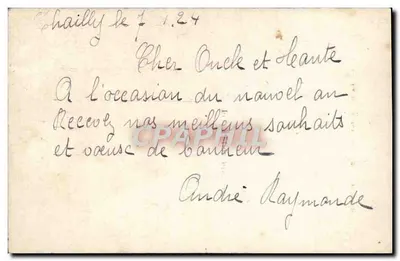 Chailly le 7 1.24
Cher Oncle et Tante
A l'occasion du nouvel an
Recevez nos meilleurs souhaits
et voeux de bonheur
André Raymonde